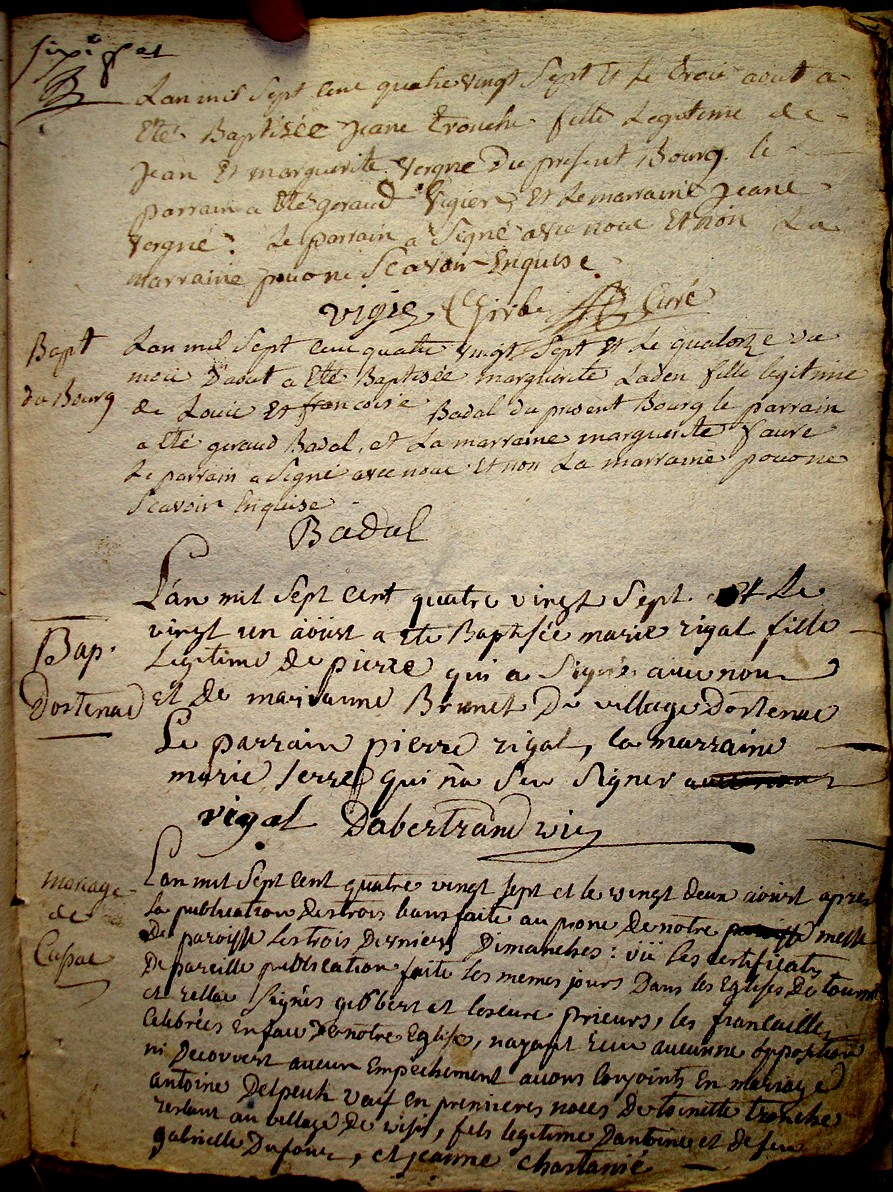 sixi
L'an mil sept cent quatre vingt sept et le trois aout a
Eté Baptisée jeane tronche fille Legitime de
jean et marguerite vergne du present Bourg. le
parrain a Eté geraud Vigier, et Le marraine jeane
vergne. Le parrain a Signé avec nous Et non La
marraine pour ne Scavoir Enquise
vigié Curé
Bapt
du Bourg
L'an mil Sept cent quatre vingt Sept Et Le quatorze du
mois D'aout a Eté Baptisée marguerite Laden fille legitime
de Louis Et francoise Badal du present Bourg le parrain
a Eté geraud Badal, et La marraine marguerite faure
Le parrain a Signé avec nous Et non La marraine pour ne
Scavoir Enquise
Badal
Bap.
Dostenac
L'an mil Sept Cent quatre vingt Sept Et Le
vingt un aoüst a ete Baptisée marie rigal fille
Legitime de pierre qui a Signé avec nous
et de marianne Brunet Du village Dostenac
Le parrain pierre rigal, la marraine
marie serre qui n'a Seu Signer
rigal Dabertrand vic
mariage
de
Cassac
L'an mil Sept Cent quatre vingt sept et le vingt deux aoust apres
la publication des trois bans faite au prone de notre messe
De paroisse les trois Derniers Dimanches: vü les certificats
De pareille publication faite les memes jours Dans les Eglises De
et Signés gibbert et lescure prieurs, les fiancailles
Celebrées En face De notre Eglise, nayant Receu aucunne opposition
ni Decouvert aucun Empechement avons Conjoints En mariage
antoine Delpeuch veuf en premieres noces De toinette tronche
restant au village De, fils legitime Dantoine et de feu
gabrielle Dufour, et jeanne chastanié